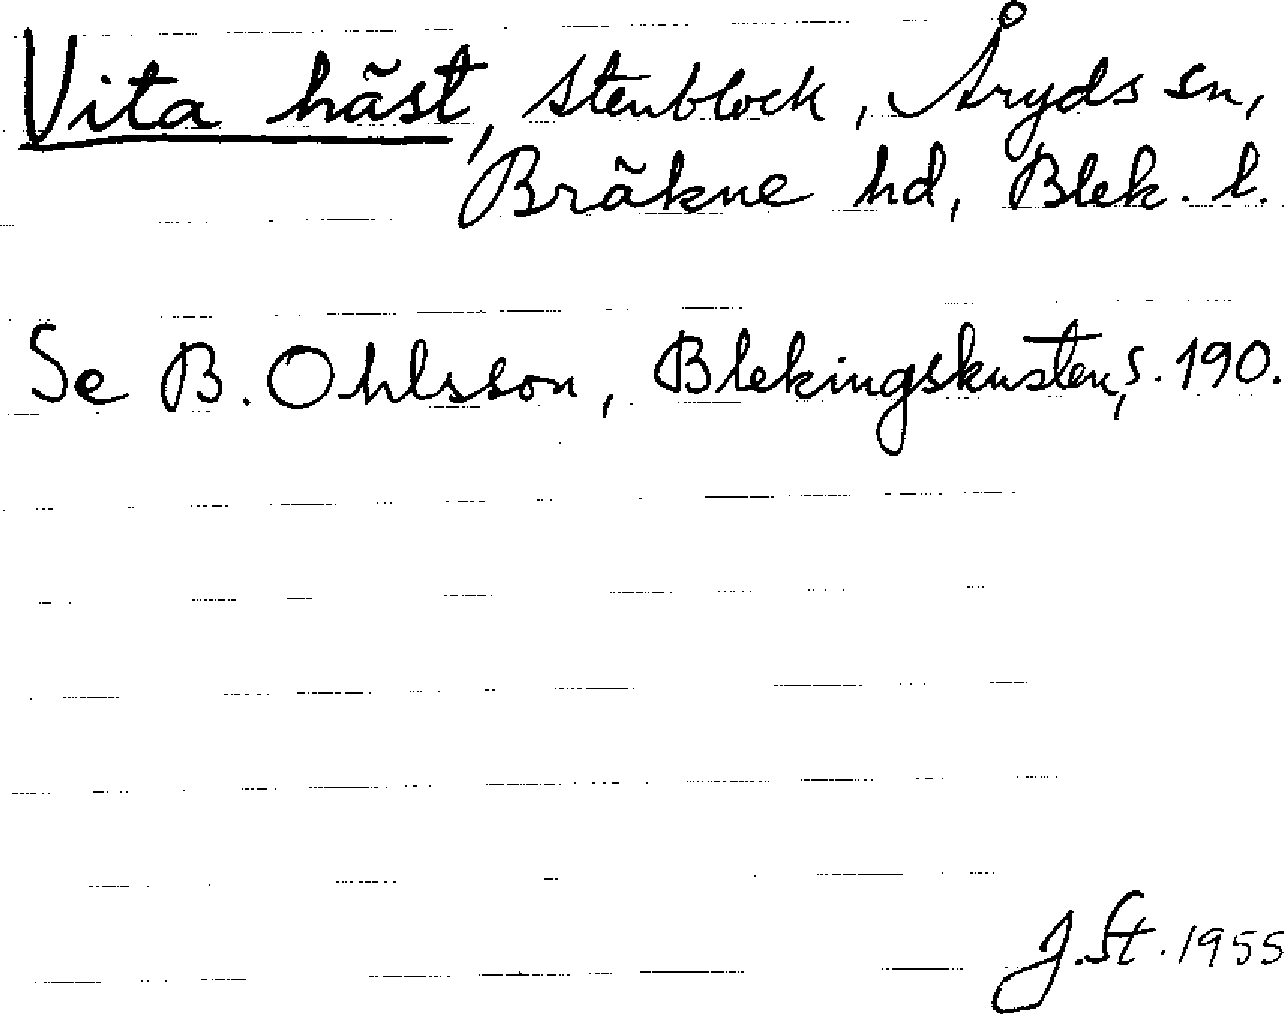 Vita häst, stenblock, Åryds sn,
Bräkne hd, Blek. l.
Se B. Ohlsson, Blekingskusten, s. 190.
J. St. 1955